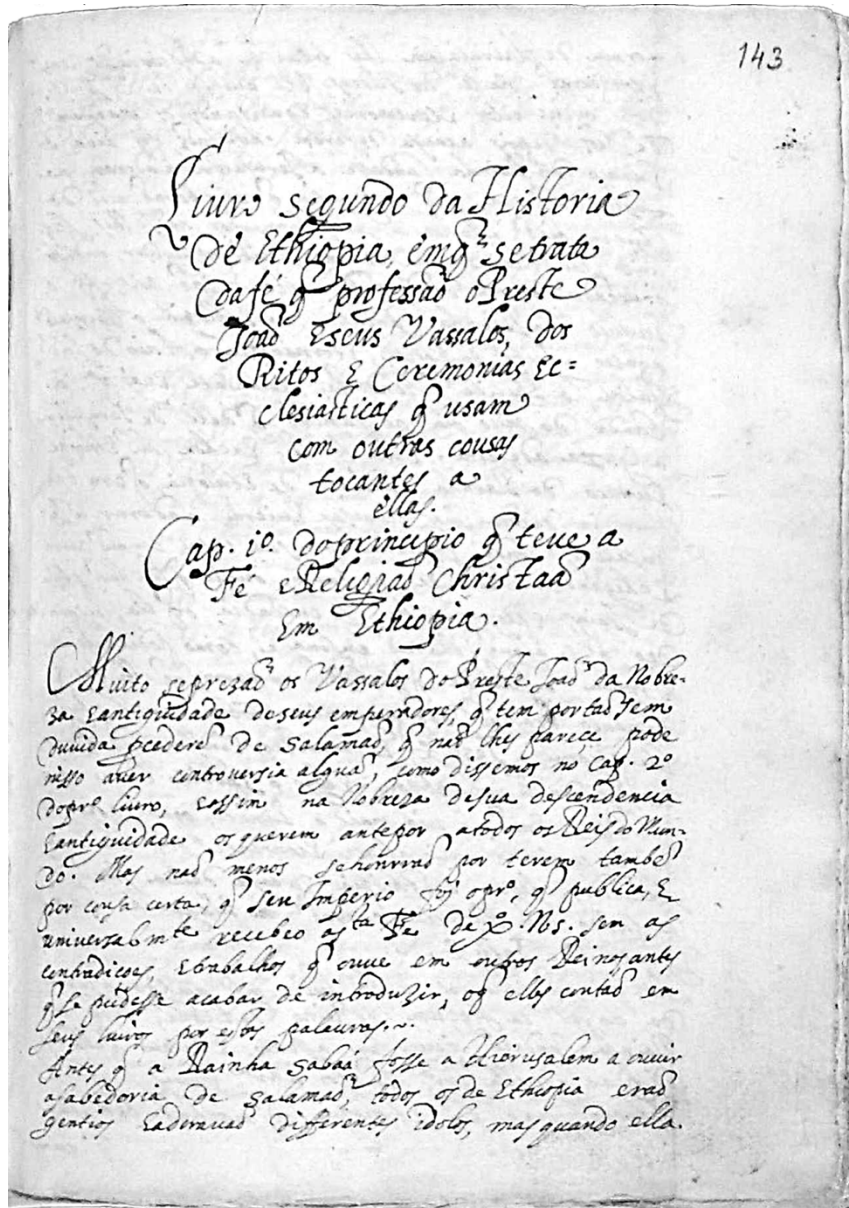 143
Livro segundo da Historia
de Ethiopia, em q̃ se trata
da fé q̃ professaõ o Preste
Joaõ E seus Vassalos, dos
Ritos E Ceremonias Ec=
clesiasticas q̃ usam
com outras cousas
tocantes a
ellas.
Cap. 1º. do principio q̃ teve a
Fé e Religiaõ Christaã
Em Ethiopia.
Muito se prezaõ os Vassalos do Preste Joaõ da Nobre-
za E antiguidade de seus emperadores, q̃ tem por taõ sem
duvida pcederẽ de Salamaõ, q̃ naõ lhes pareçe pode
nisso aver controversia alguã, como dissemos no Cap. 2º
do prº livro, E assim na Nobreza de sua descendencia
E antiguidade os querem antepor a todos os Reis do Mun-
do. Mas naõ menos se honrraõ por terem tambẽ
por cousa certa, q̃ seu Imperio foj o prº, q̃ publica, E
universalmte recebeo a sta Fé de Xº. Ns. sem as
contradições, E trabalhos q̃ ouve em outros Reinos antes
q̃ se pudesse acabar de introduzir, o q̃ elles contaõ em
seus livros por estas palauras.~
Antes q̃ a Rainha Sabaá fosse a Hierusalem a ouvir
a sabedoria de Salamaõ, todos os de Ethiopia eraõ
gentios E adoravaõ differentes idolos, mas quando ella.